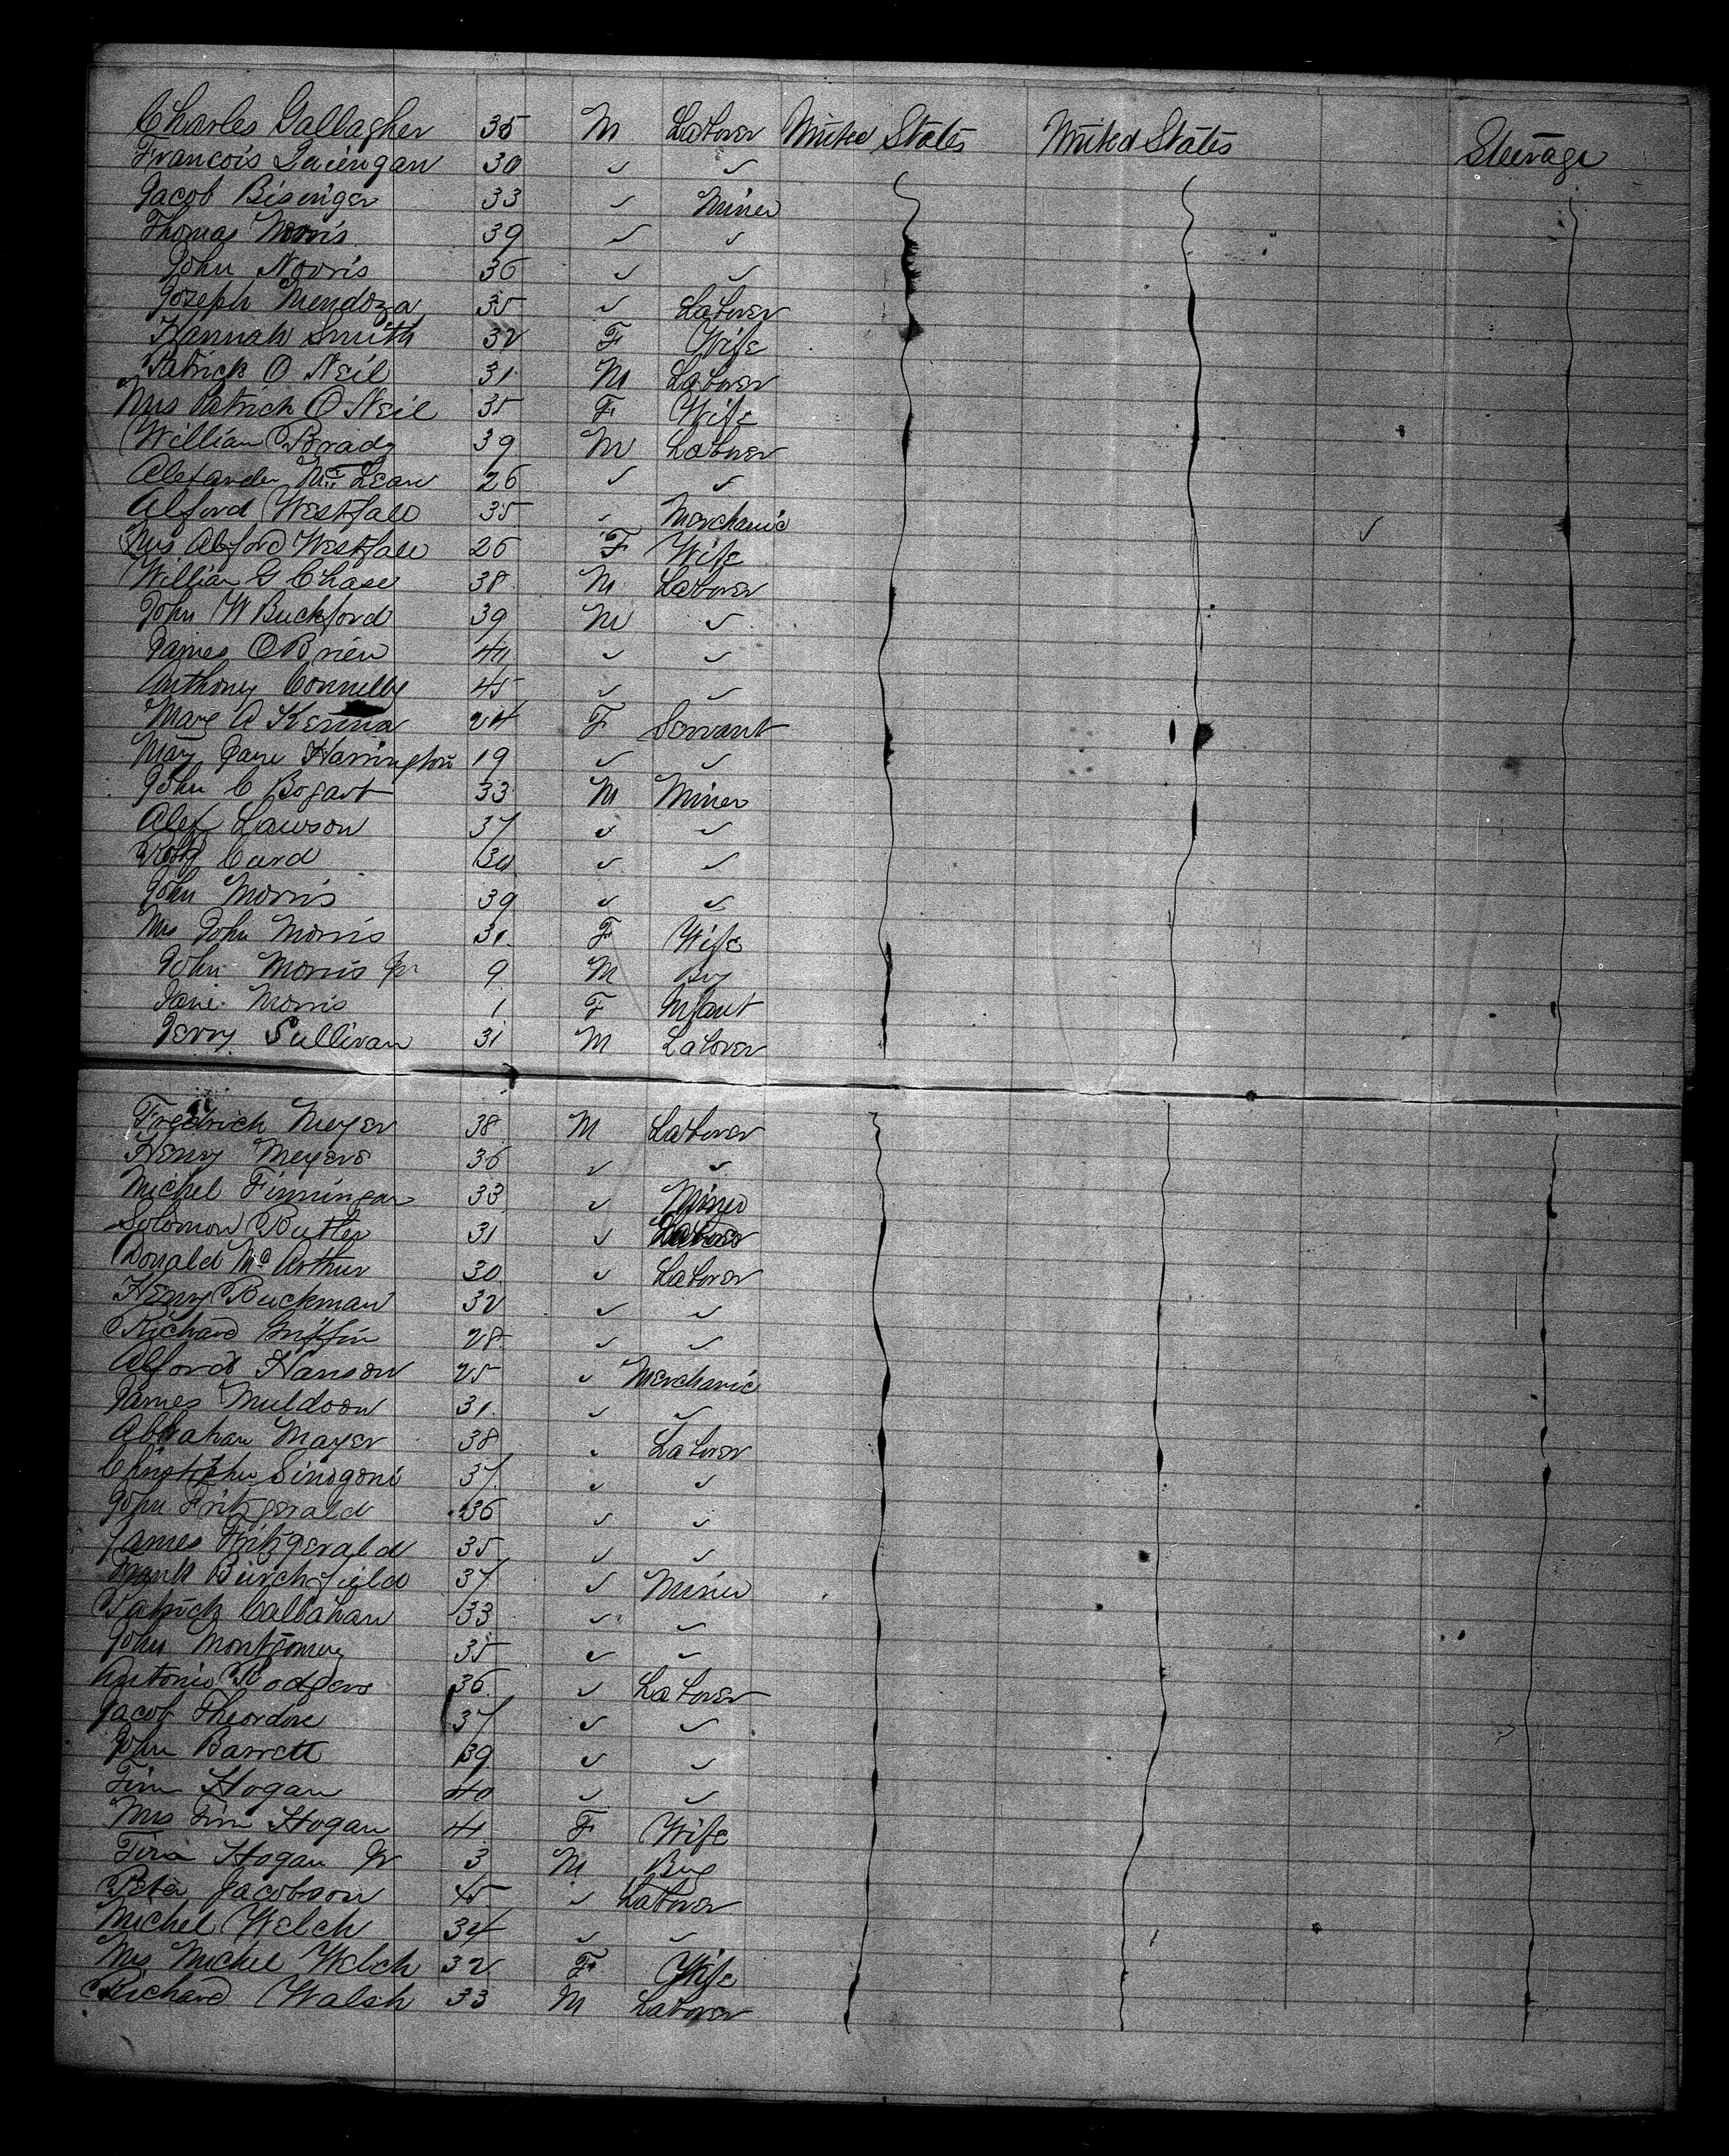 Charles Gallagher 35 M Laborer United States United States Steerage
Francois 30 ✓ ✓
Jacob Bisinger 33 ✓ Miner
Thomas Morris 39 ✓ ✓
John Norris 36 ✓ ✓
Joseph Mendoza 35 ✓ Laborer
Hannah Smith 32 F Wife
Patrick O Neil 31 M Laborer
Mrs Patrick O Neil 35 F Wife
William Brady 39 M Laborer
Alexander Mc Lean 26 ✓ ✓
Alford Westfall 35 ✓ Merchanic ✓
Mrs Alford Westfall 26 F Wife
William G Chase 38 M Laborer
John W Buckford 39 M ✓
James O Brien 41 ✓ ✓
Anthony Connelly 45 ✓ ✓
Mary A Kenna 24 F Servant
Mary Jane Harrington 19 ✓ ✓
John C Bogart 33 M Miner
Alex Lawson 37 ✓ ✓
Card 30 ✓ ✓
John Morris 39 ✓ ✓
Mrs John Morris 31 F Wife
John Morris Jr 9 M Boy
Jane Morris 1 F Infant
Jerry Sullivan 31 M Laborer
Fredrich Meyer 38 M Laborer
Henry Meyers 36 ✓ ✓
Michel Finningan 33 ✓ Miner
Solomon Butler 31 ✓ Laborer
Donald Mc Arthur 30 ✓ Laborer
Henry Buckman 32 ✓ ✓
Richard Griffin 28 ✓ ✓
Alford Hanson 25 ✓ Merchanic
James Muldoon 31 ✓ ✓
Abraham Mayer 38 ✓ Laborer
Christopher Sinogoni 37 ✓ ✓
John Fritzgerald 36 ✓ ✓
James Fritzgerald 35 ✓ ✓
Frank Burchfield 37 ✓ Miner
Patrick Callahan 33 ✓ ✓
John Montgomery 35 ✓ ✓
Antonio Rodgers 36 ✓ Laborer
Jacob Theordore 37 ✓ ✓
John Barrett 39 ✓ ✓
Tim Hogan 40 ✓ ✓
Mrs Tim Hogan 41 F Wife
Tim Hogan Jr 3 M Boy
Peter Jacobson 45 ✓ Laborer
Michel Welch 34 ✓ ✓
Mrs Michel Welch 32 F Wife
Richard Walsh 33 M Laborer